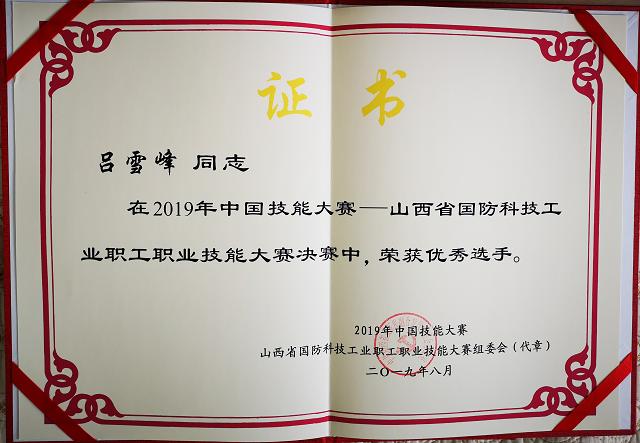 证书
吕雪峰 同志
在2019年中国技能大赛——山西省国防科技工
业职工职业技能大赛决赛中，荣获优秀选手。
2019年中国技能大赛
山西省国防科技工业职工职业技能大赛组委会（代章）
二〇一九年八月